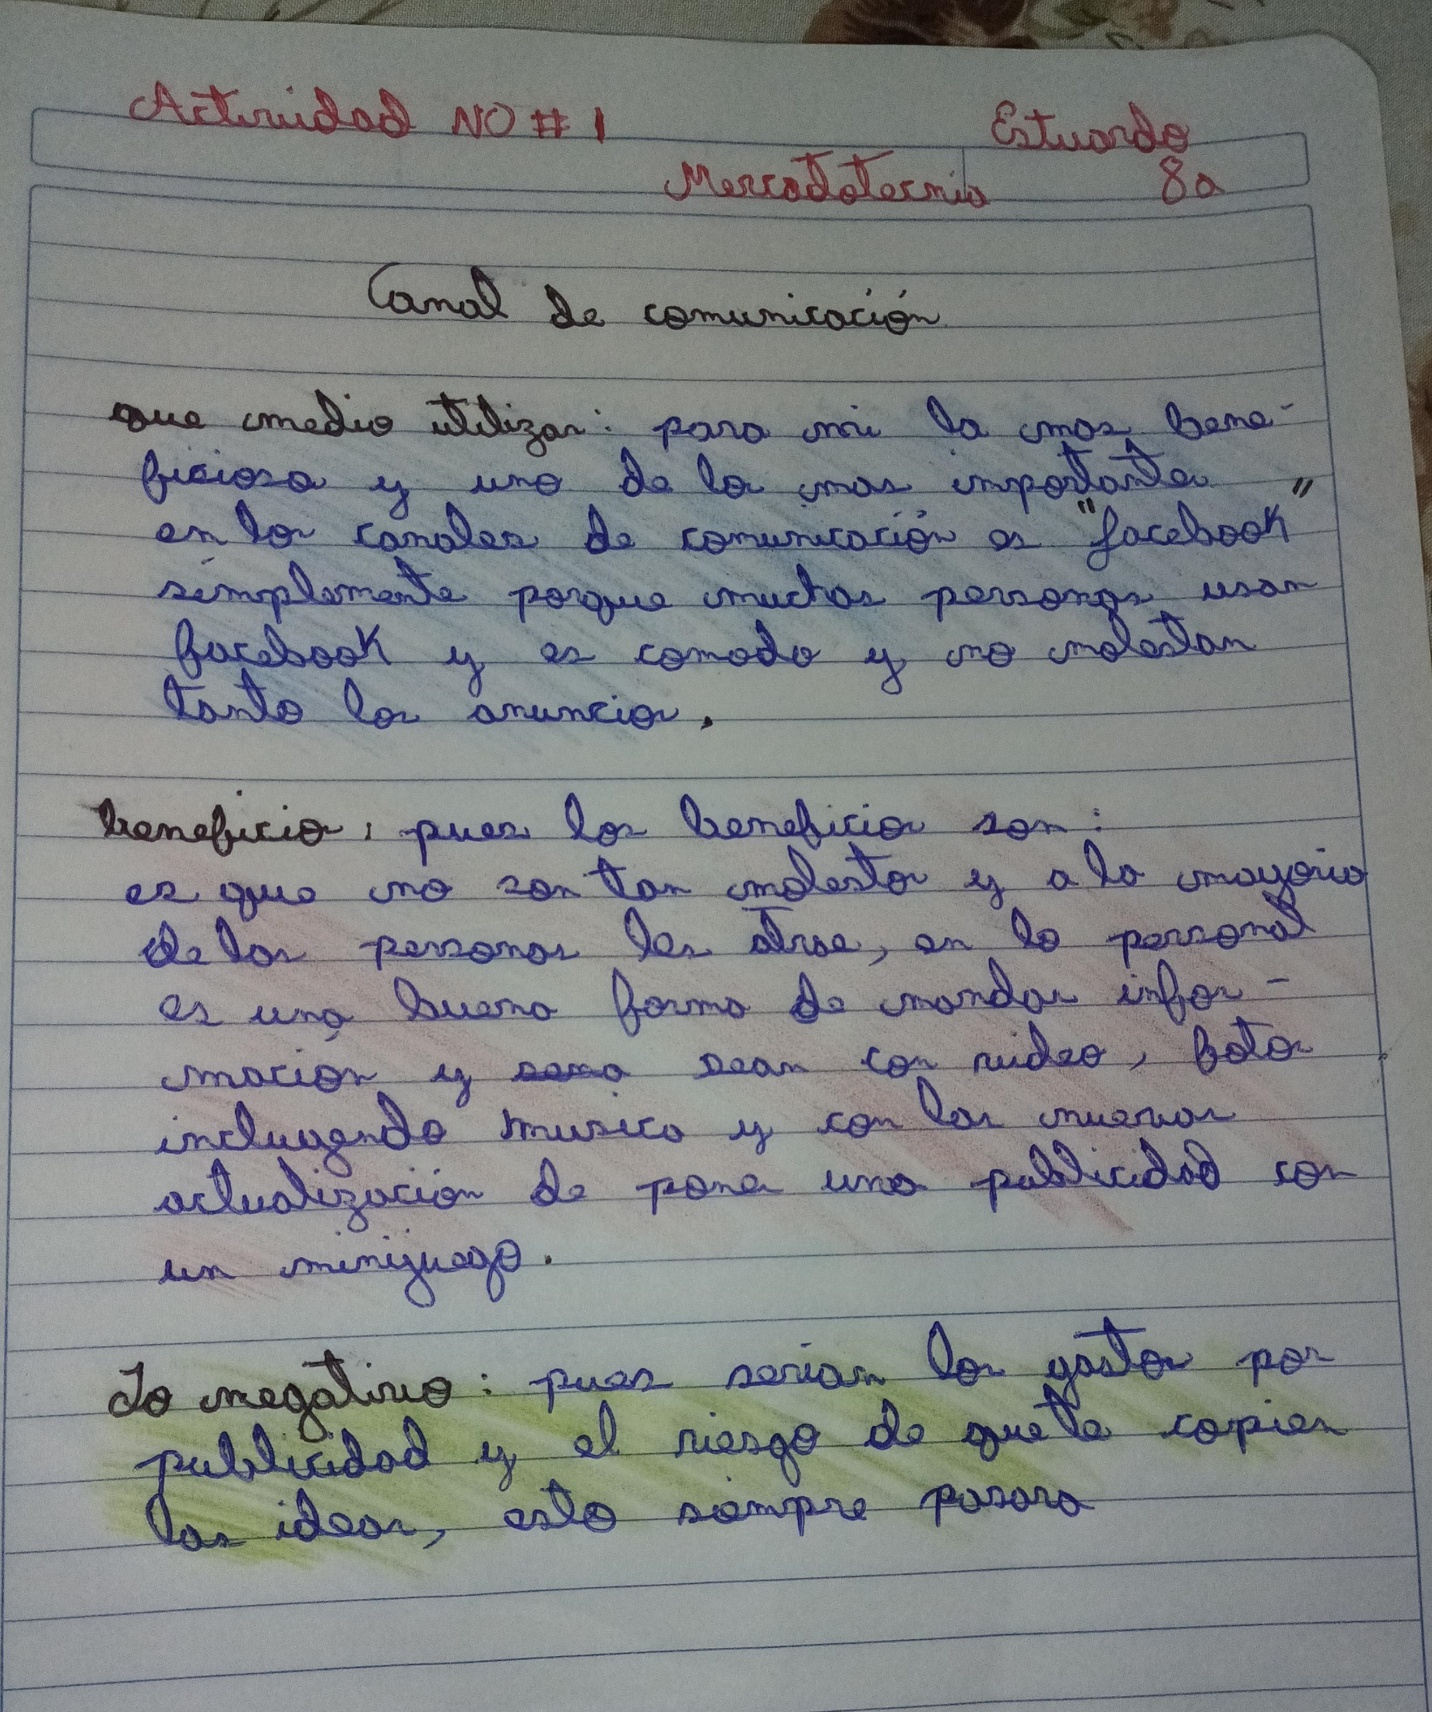 Actividad NO # 1
Estuardo
Mercadotecnia 8a
Canal de comunicación
que medio utilizar: para mi la mas bene-
ficiosa y uno de los mas importantes
en los canales de comunicación es "facebook"
simplemente porque muchas personas usan
facebook y es comodo y no molestan
tanto los anuncios.
beneficios, pues los beneficios son:
es que no son tan molestos y a la mayoria
de las personas les atrae, en lo personal
es una buena forma de mandar infor-
mación y sean con video, fotos
incluyendo musica y con las nuevas
actualización de poner una publicidad con
un minijuego.
Lo negativo: pues serian los gastos por
publicidad y el riesgo de que te copien
las ideas, esto siempre pasara